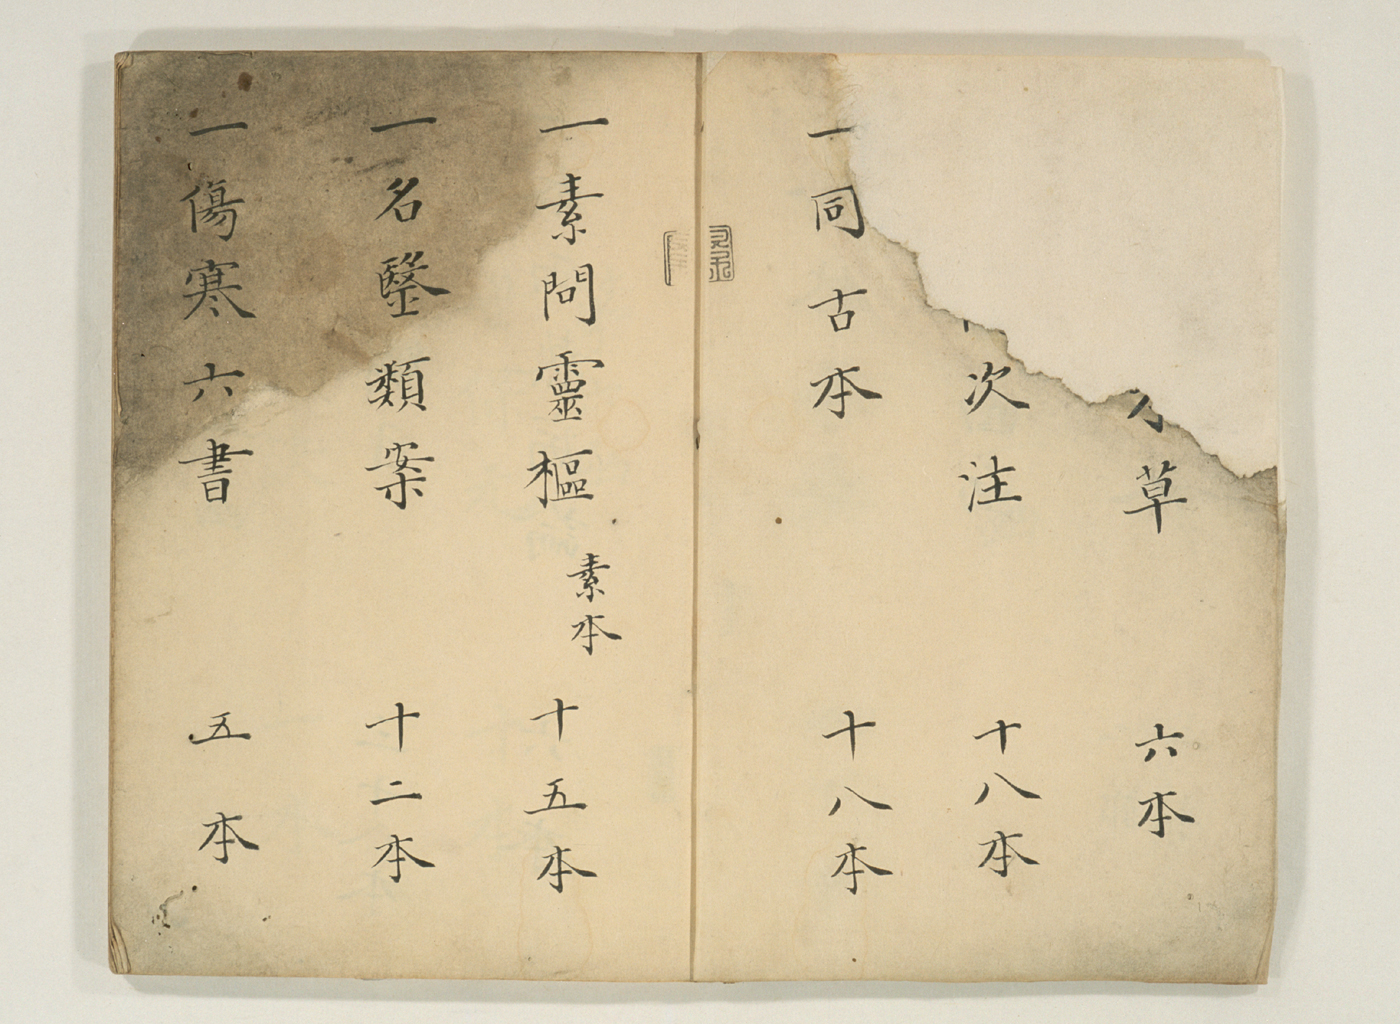 草 六本
次注 十八本
一同古本 十八本
一素問靈樞 素本 十五本
一名醫類案 十二本
一傷寒六書 五本